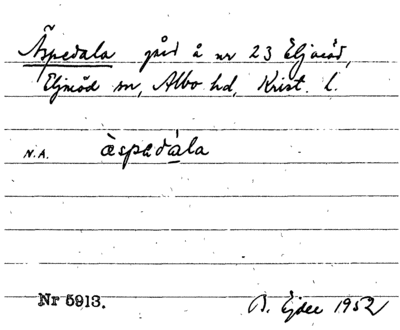 Äspedala gård å nr 23 Eljaröd,
Eljaröd sn, Albo hd, Krist. l.
N.A. àspədála
Nr 5913.
B. Ejder 1952